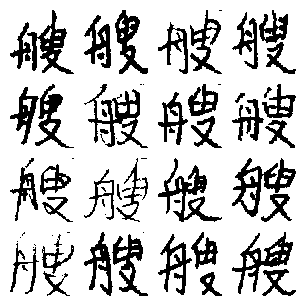 艘艘艘艘
艘艘艘艘
艘艘艘艘
艘艘艘艘